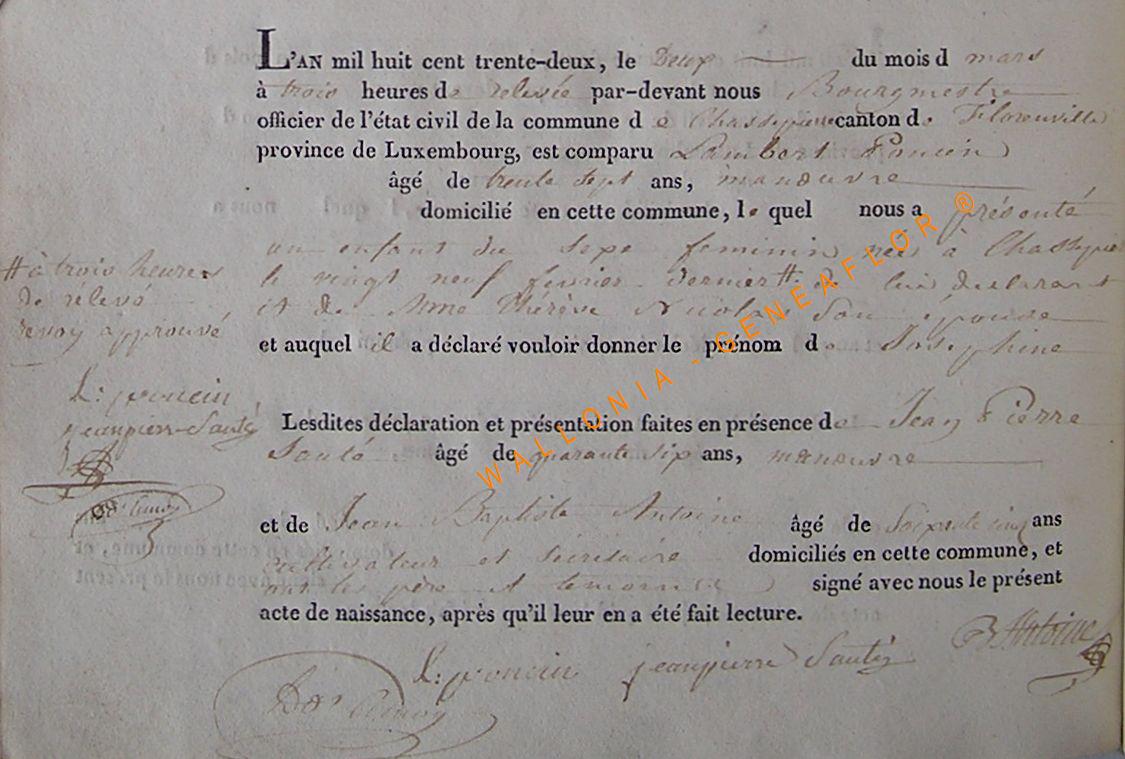 L'AN mil huit cent trente-deux, le Deux du mois d mars
à trois heures de relevée par-devant nous Bourgmestre
officier de l'état civil de la commune de Chassepierre canton de Florenville
province de Luxembourg, est comparu Lambert Poncin
âgé de trente sept ans, manœuvre
domicilié en cette commune, le quel nous a présenté
un enfant du sexe feminin née à Chassepierre
le vingt neuf fevrier dernier # de lui declarant
et de Thérèse Nicolas son épouse
et auquel il a déclaré vouloir donner le prénom de Josephine
Lesdites déclaration et présentation faites en présence de Jean Pierre
âgé de quarante six ans, manœuvre
et de Jean Baptiste Antoine âgé de soixante cinq ans
cultivateur et sécrétaire domiciliés en cette commune, et
ont les père et temoins signé avec nous le présent
acte de naissance, après qu'il leur en a été fait lecture.
# à trois heures
de rélevé
renvoy approuvé
L: poncin
jeanpierre
L: poncin jeanpierre B Antoine
WALLONIA - GENEAFLOR ®